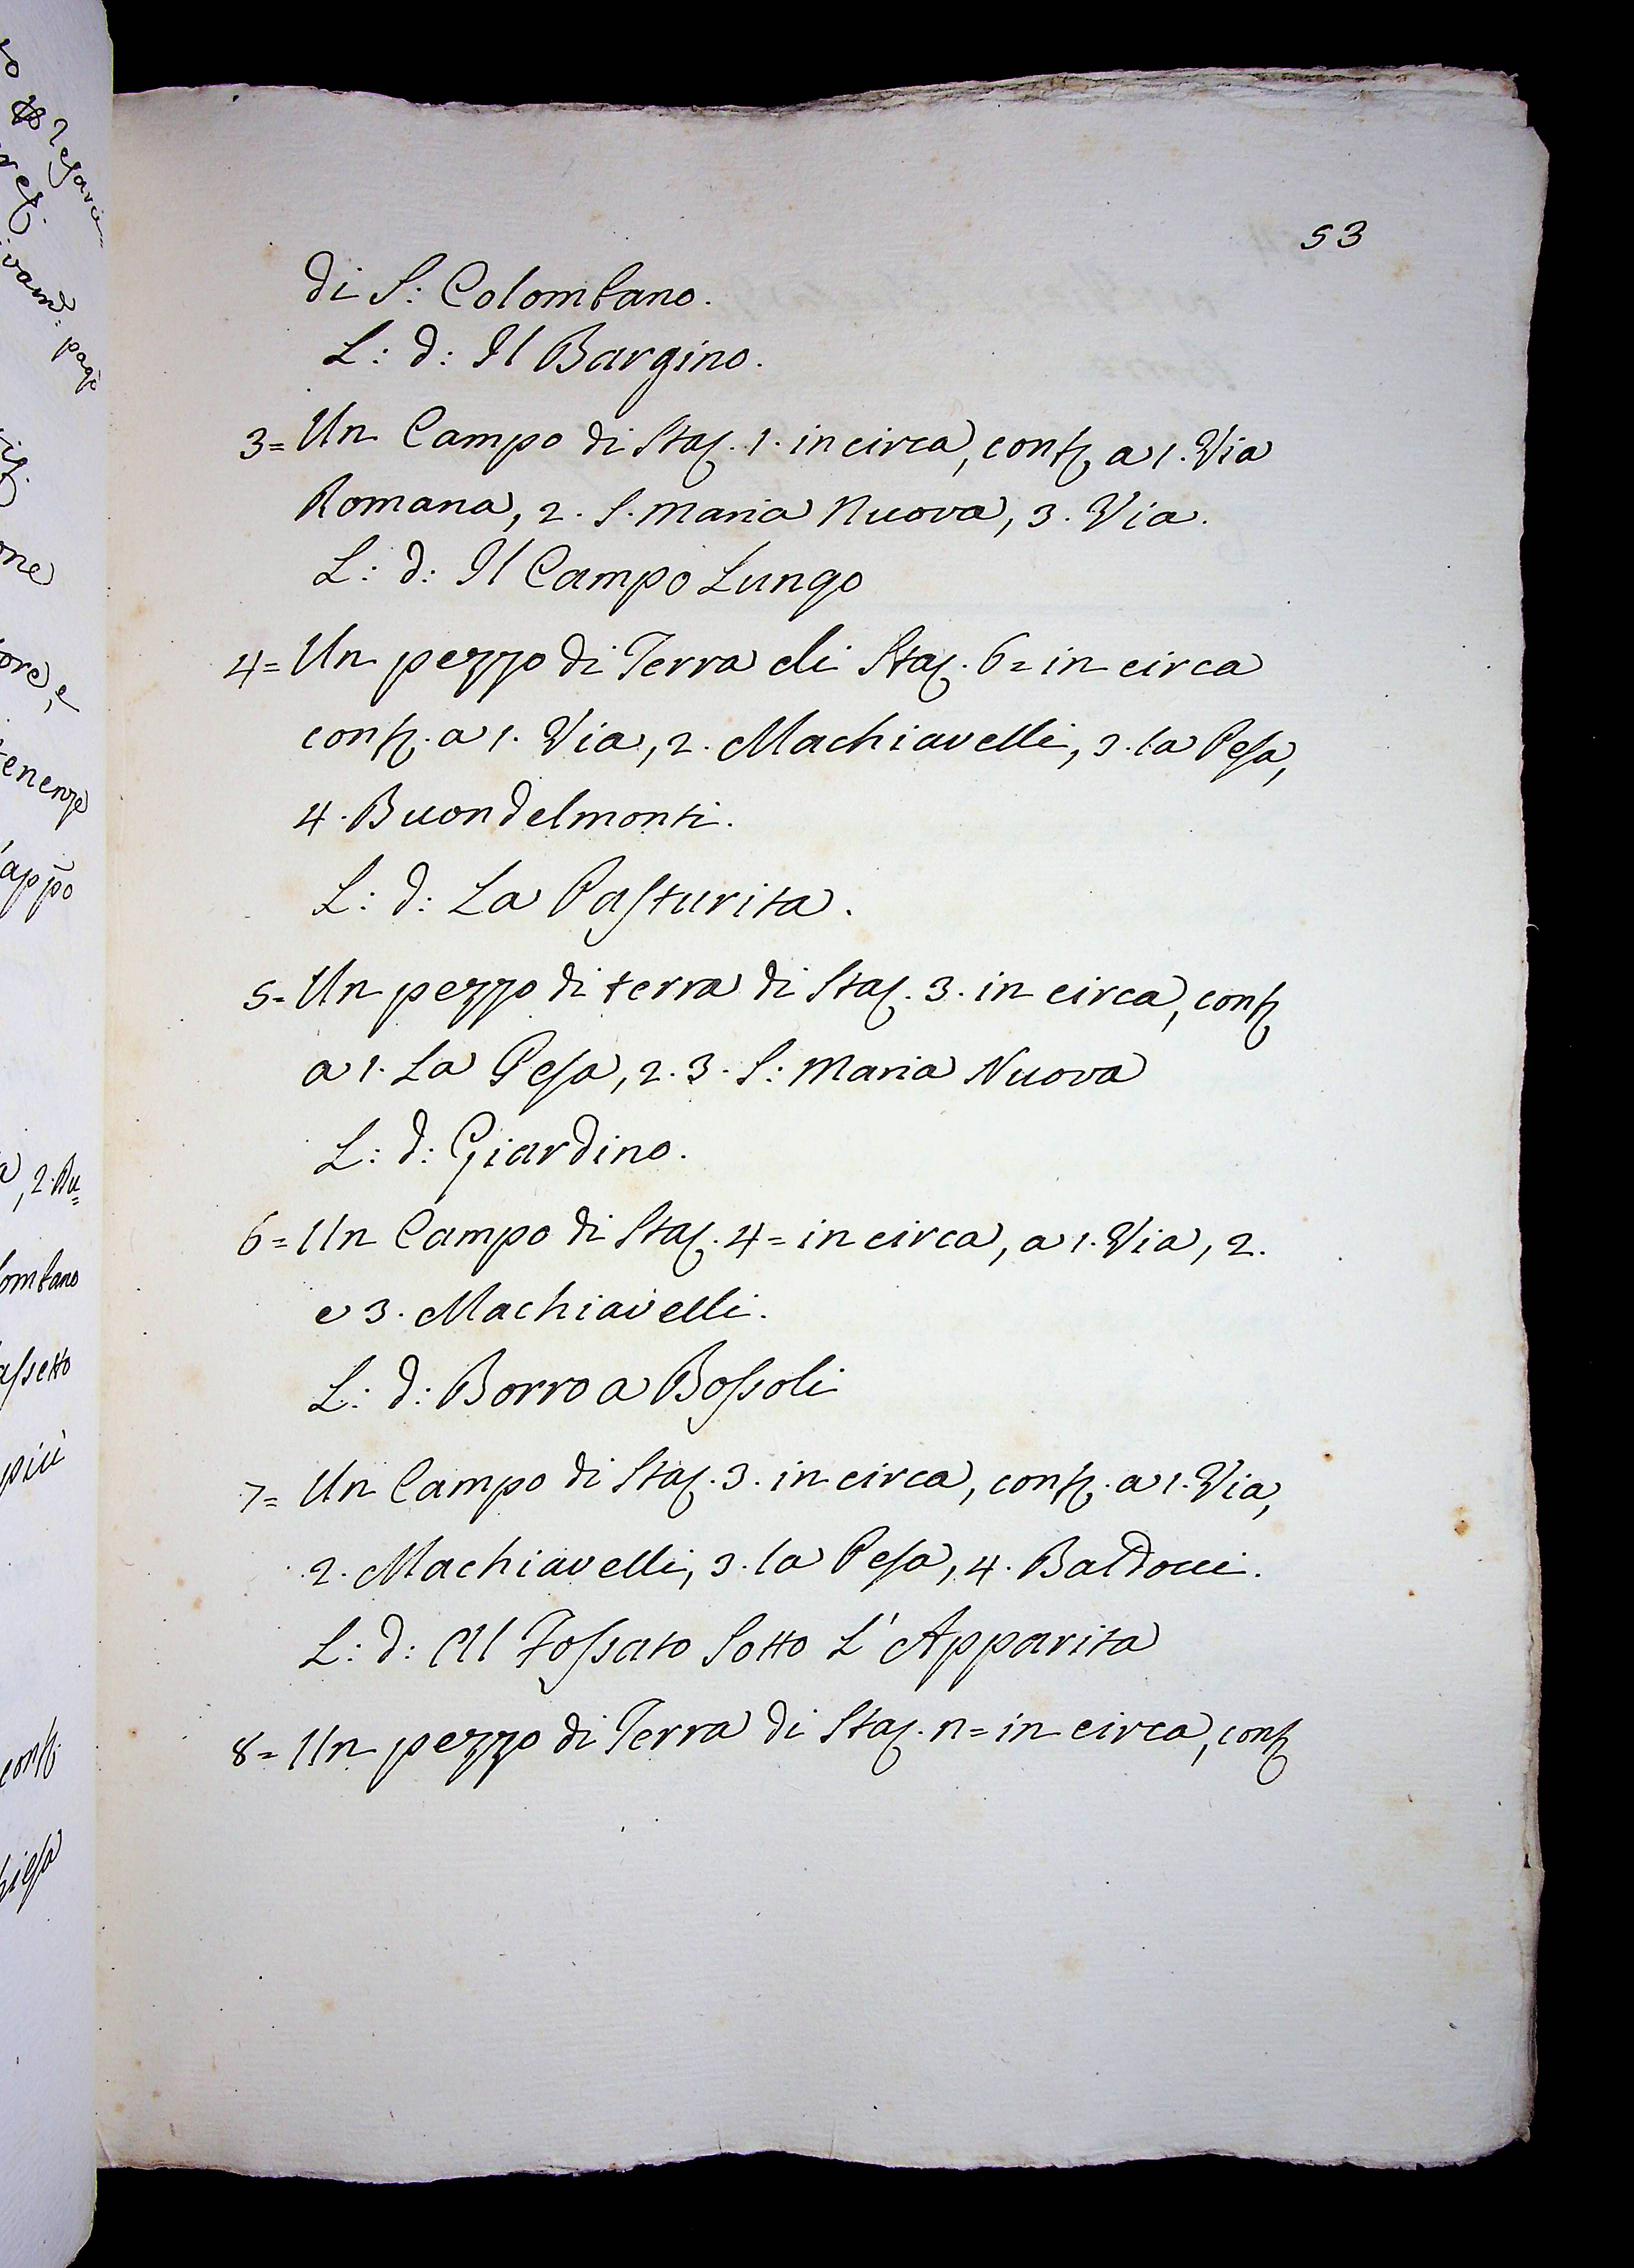 53
di S: Colombano.
L: d: Il Bargino.
3= Un Campo di Staj. 1. in circa, conf. a 1. Via
Romana, 2. S. Maria Nuova, 3. Via.
L: d: Il Campo Lungo
4= Un pezzo di Terra di Staj. 6= in circa
conf. a 1. Via, 2. Machiavelli, 3. la Pesa,
4. Buondelmonti.
L: d: La Pasturita.
5= Un pezzo di terra di Staj. 3. in circa, conf.
a 1. La Pesa, 2. 3. S: Maria Nuova
L: d: Giardino.
6= Un Campo di Staj. 4= in circa, a 1. Via, 2.
e 3. Machiavelli.
L: d: Borro a Bossoli
7= Un Campo di Staj. 3. in circa, conf. a 1. Via,
2. Machiavelli, 3. la Pesa, 4. Baldocci.
L: d: Al Fossato Sotto L'Apparita
8= Un pezzo di Terra di Staj. n= in circa, conf.